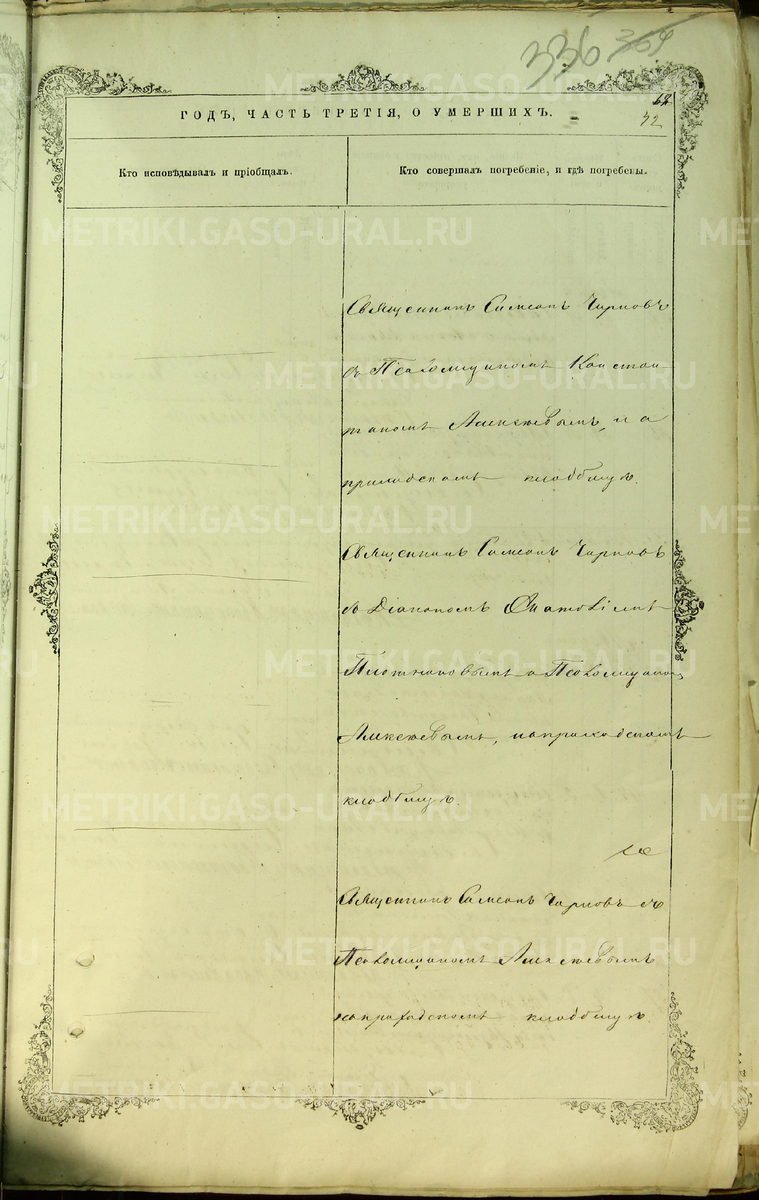 336 369
ГОДЪ, ЧАСТЬ ТРЕТІЯ, О УМЕРШИХЪ.
32
Кто исповѣдывалъ и пріобщалъ.
Кто совершалъ погребеніе, и гдѣ погребены.
METRIKI.GASO-URAL.RU
Священникъ Симеонъ Черновъ
съ Псаломщикомъ Констан
тиномъ Алексѣевымъ, на
приходскомъ кладбищѣ.
METRIKI.GASO-URAL.RU
Священникъ Симеонъ Черновъ
съ Діакономъ
Плотниковымъ и Псаломщикомъ
METRIKI.GASO-URAL.RU
Алексѣевымъ, на приходскомъ
кладбищѣ.
METRIKI.GASO-URAL.RU
Священникъ Симеонъ Черновъ съ
Псаломщикомъ Алексѣевымъ
на приходскомъ кладбищѣ.
METRIKI.GASO-URAL.RU